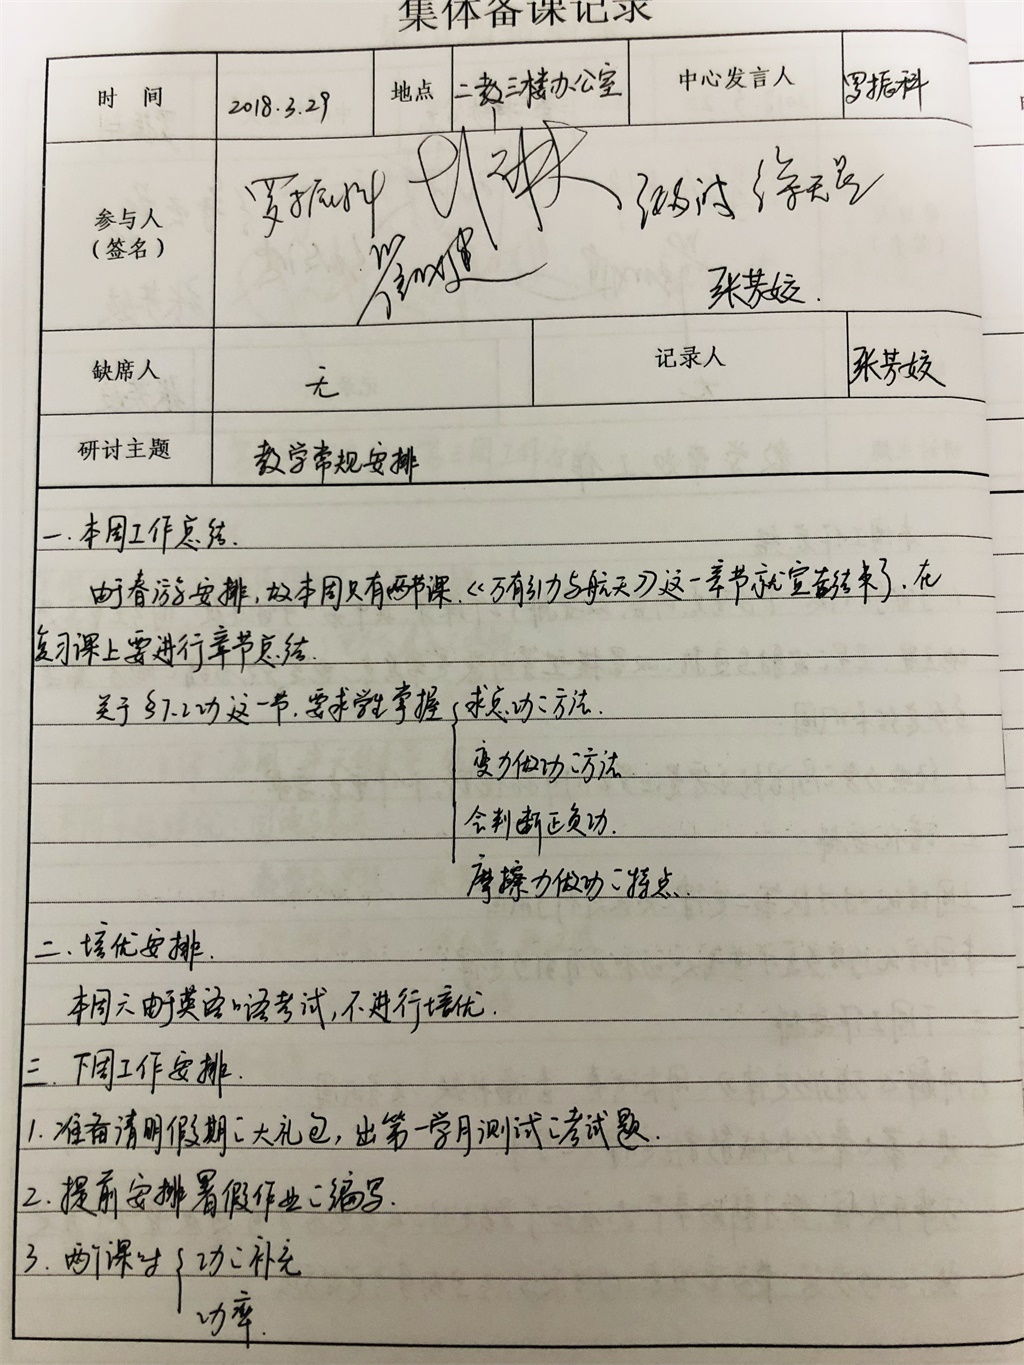 集体备课记录
时 间 2018.3.29 地点 二教三楼办公室 中心发言人 罗振科
参与人
(签名) 罗振科 徐天昱
张芳姣.
缺席人 无 记录人 张芳姣
研讨主题 教学常规安排
一.本周工作总结.
由于春游安排,故本周只有两节课.《万有引力与航天》这一章节就宣告结束了.在
复习课上要进行章节总结.
关于§7.2功这一节.要求学生掌握{求总功二方法.
变力做功二方法.
会判断正负功.
摩擦力做功二特点.
二.培优安排.
本周六由于英语口语考试,不进行培优.
三.下周工作安排.
1.准备清明假期二大礼包,出第一学月测试二考试题.
2.提前安排暑假作业二编写.
3.两个课时{功二补充
功率.